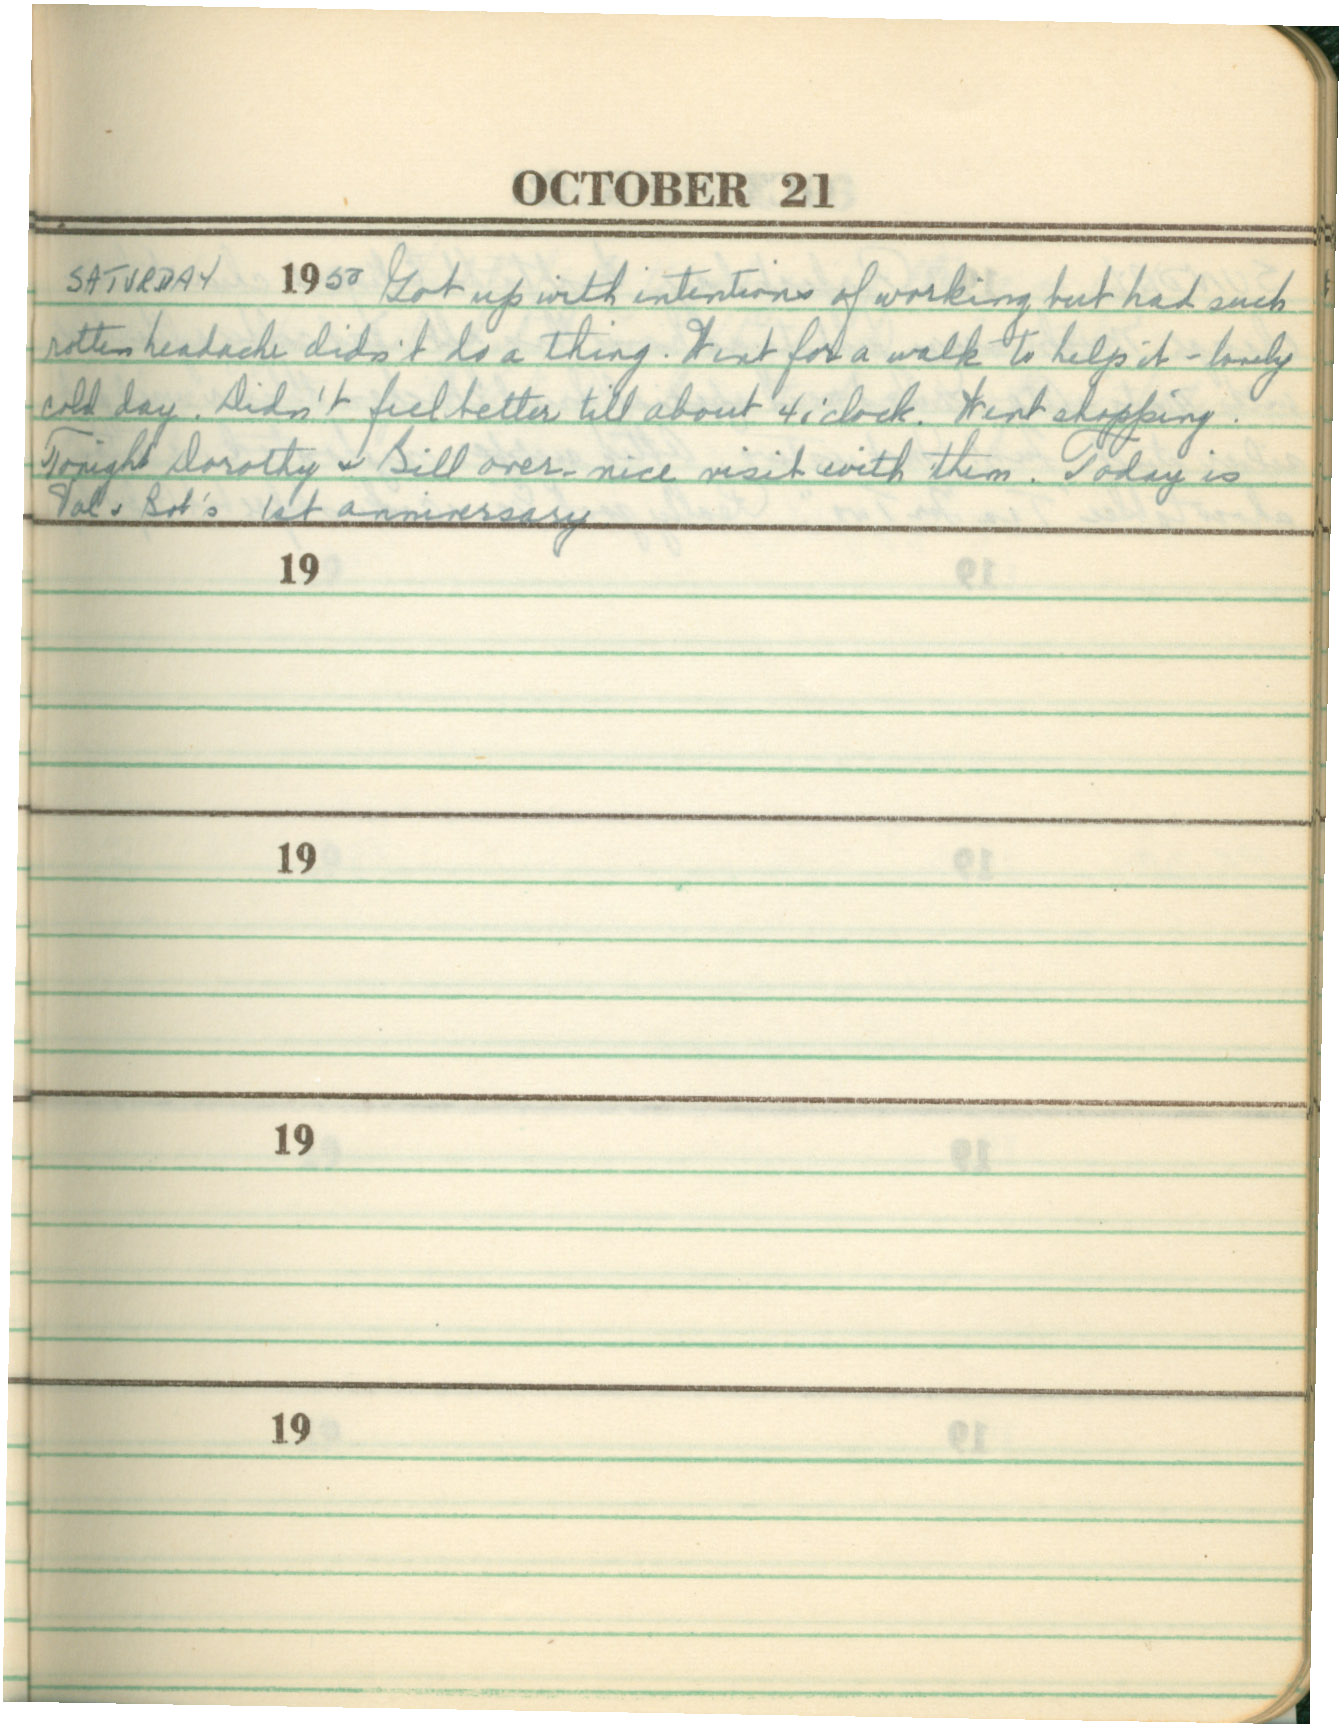 OCTOBER 21
SATURDAY 1950 Got up with intentions of working but had such
rotten headache didn't do a thing. Went for a walk to help it - lovely
cold day. Didn't feel better till about 4 o'clock. Went shopping.
Tonight Dorothy & Bill over - nice visit with them. Today is
& Bob's 1st anniversary
19
19
19
19